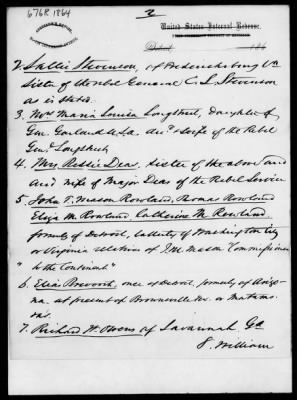 676R 1864
2
United States Internal Revenue.
186
2. Sallie Stevenson, of Fredericksburg Va
Sister of the Rebel General C. L. Stevenson
as is State.
3. Mrs Maria Louisa Longstreet, Daughter of
Gen. Garland & wife of the Rebel
Genl Longstreet
4. Mrs Bettie Deas, Sister of the above and
and wife of Major Deas of the Rebel Service
5. John T. Mason Rowland, Thomas Rowland
Eliza M. Rowland Catherine M. Rowland
formerly of Detroit, latterly of Washington City
or Virginia relatives of J M. Mason Commissioner
"to the Continent"
6. Elias Brevoort, once of Detroit, formerly of Arizo-
na. at present of Brownsville Tex. or Matamo-
ras.
7. Richard W. Owens of Savannah Ga
S. William